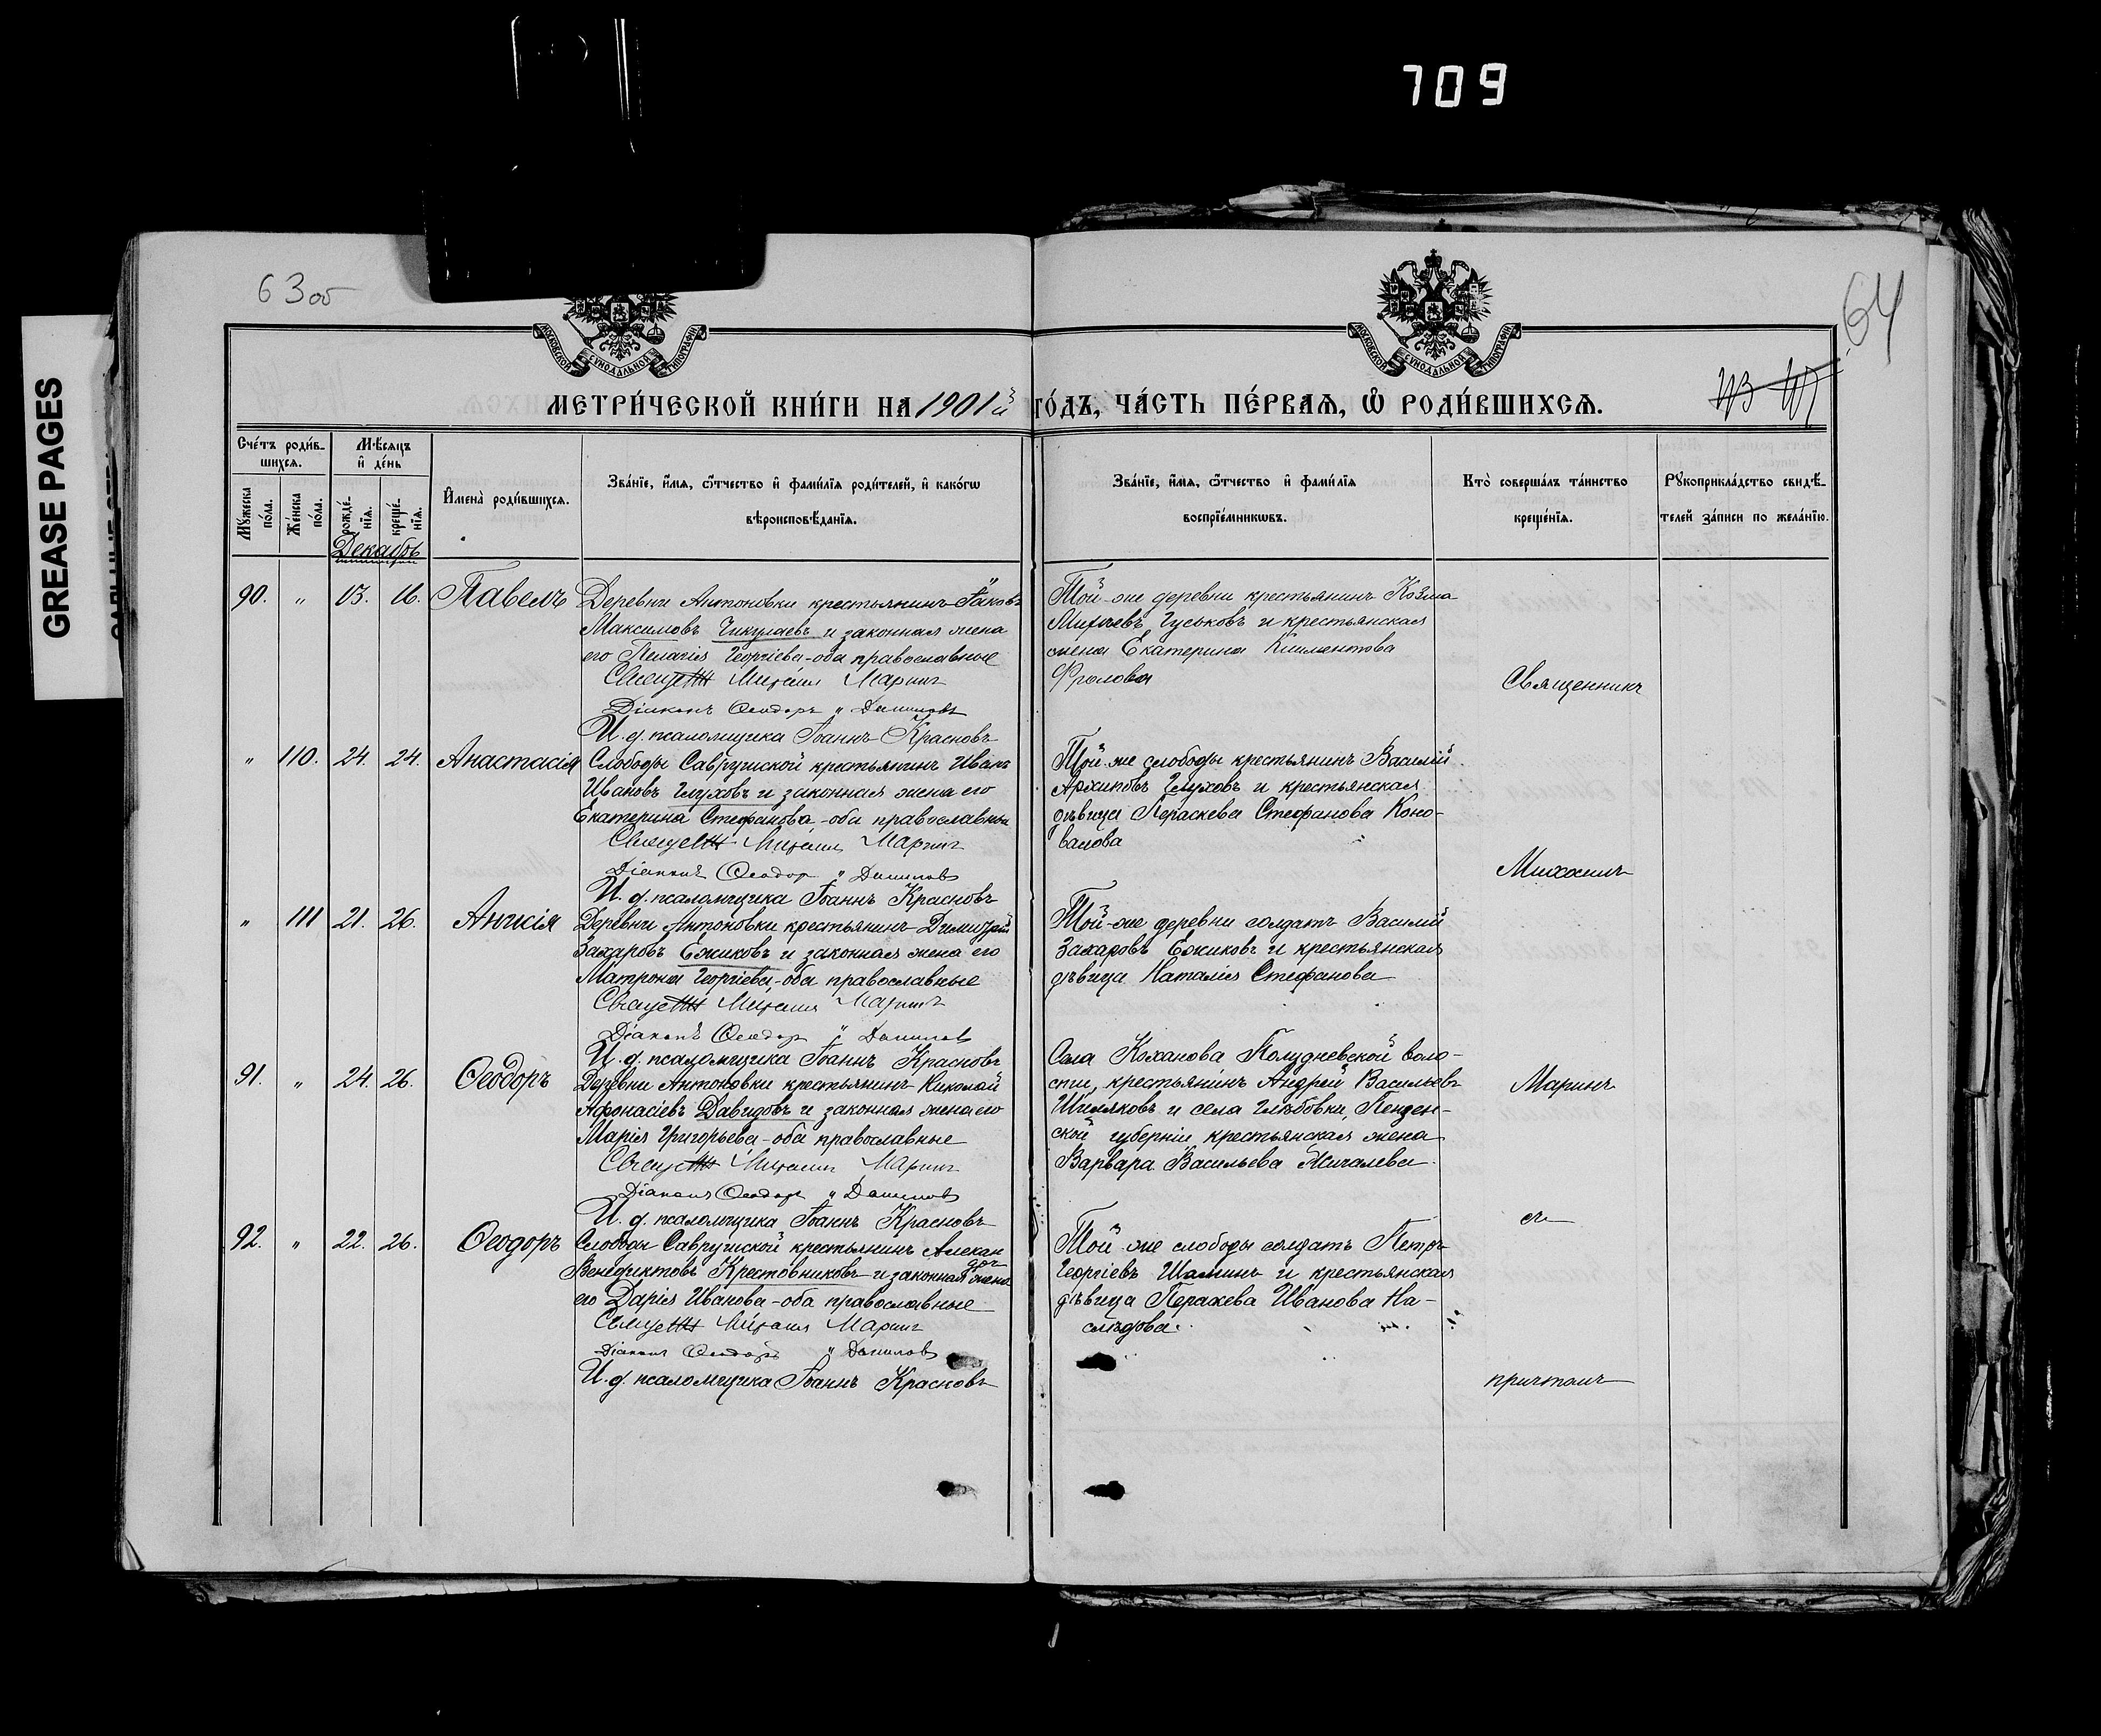 709
GREASE PAGES
63об
64
МОСКОВСКОЙ СУНОДАЛЬНОЙ ТИПОГРАФІИ
МОСКОВСКОЙ СУНОДАЛЬНОЙ ТИПОГРАФІИ
МЕТРИ́ЧЕСКОЙ КНИ́ГИ НА 1901й ГО́ДЪ, ЧА́СТЬ ПЕ́РВАѦ, Ѿ РОДИ́ВШИХСѦ.
Сче́тъ роди́в-
шихсѧ.
Мѣ́сѧцъ
и҆ де́нь
Мꙋ́жеска по́ла.
Же́нска по́ла.
рожде́-нїѧ.
креще́-нїѧ.
И҆мена̀ роди́вшихсѧ.
Зва́нїе, и҆́мѧ, ѻ҆́тчество и҆ фами́лїѧ роди́телей, и҆ како́гѡ
вѣроисповѣ́данїѧ.
Зва́нїе, и҆́мѧ, ѻ҆́тчество и҆ фами́лїѧ
воспрїе́мникѡвъ.
Кто̀ соверша́лъ та́инство
креще́нїѧ.
Рꙋкоприкла́дство свидѣ́-
телей за́писи по жела́нїю.
Декабрь
90. " 13. 16. Павелъ
Деревни Антоновки крестьянинъ Іаковъ
Максимовъ Чикулаевъ и законная жена
его Пелагія Георгіева - оба православные
Михаилъ Маринъ
Діаконъ Ѳеодоръ Даниловъ
И. д. псаломщика Іоаннъ Красновъ
Той-же деревни крестьянинъ Козма
Михеевъ Гуськовъ и крестьянская
жена Екатерина Климентова
Фролова
Священникъ
" 110. 24. 24. Анастасія
Слободы Савружской крестьянинъ Иванъ
Ивановъ Глуховъ и законная жена его
Екатерина Стефанова, - оба православные
Михаилъ Маринъ
Діаконъ Ѳеодоръ Даниловъ
И. д. псаломщика Іоаннъ Красновъ
Той-же слободы крестьянинъ Василій
Архиповъ Глуховъ и крестьянская
дѣвица Параскева Стефанова Коно-
валова
Михаилъ
" 111 21. 26. Анисія
Деревни Антоновки крестьянинъ Димитрій
Захаровъ Ежиковъ и законная жена его
Матрона Георгіева, - оба православные
Михаилъ Маринъ
Діаконъ Ѳеодоръ Даниловъ
И. д. псаломщика Іоаннъ Красновъ
Той-же деревни солдатъ Василій
Захаровъ Ежиковъ и крестьянская
дѣвица Наталія Стефанова
91. " 24. 26. Ѳеодоръ
Деревни Антоновки крестьянинъ Николай
Афонасіевъ Давидовъ и законная жена его
Марія Григорьева - оба православные
Михаилъ Маринъ
Діаконъ Ѳеодоръ Даниловъ
И. д. псаломщика Іоаннъ Красновъ
Села Коханова Полудневской воло-
сти, крестьянинъ Андрей Васильевъ
Шиляковъ и села Глѣбовки, Пензен-
ской губерніи крестьянская жена
Варвара Васильева
Маринъ
съ
92. " 22. 26. Ѳеодоръ
Слободы Савружской крестьянинъ Алексан
дръ
Венедиктовъ Крестовниковъ и законная жена
его Дарія Иванова - оба православные
Михаилъ Маринъ
Діаконъ Ѳеодоръ Даниловъ
И. д. псаломщика Іоаннъ Красновъ
Той же слободы солдатъ Петръ
Георгіевъ Шаминъ и крестьянская
дѣвица Иванова На-
слѣдова.
причтомъ